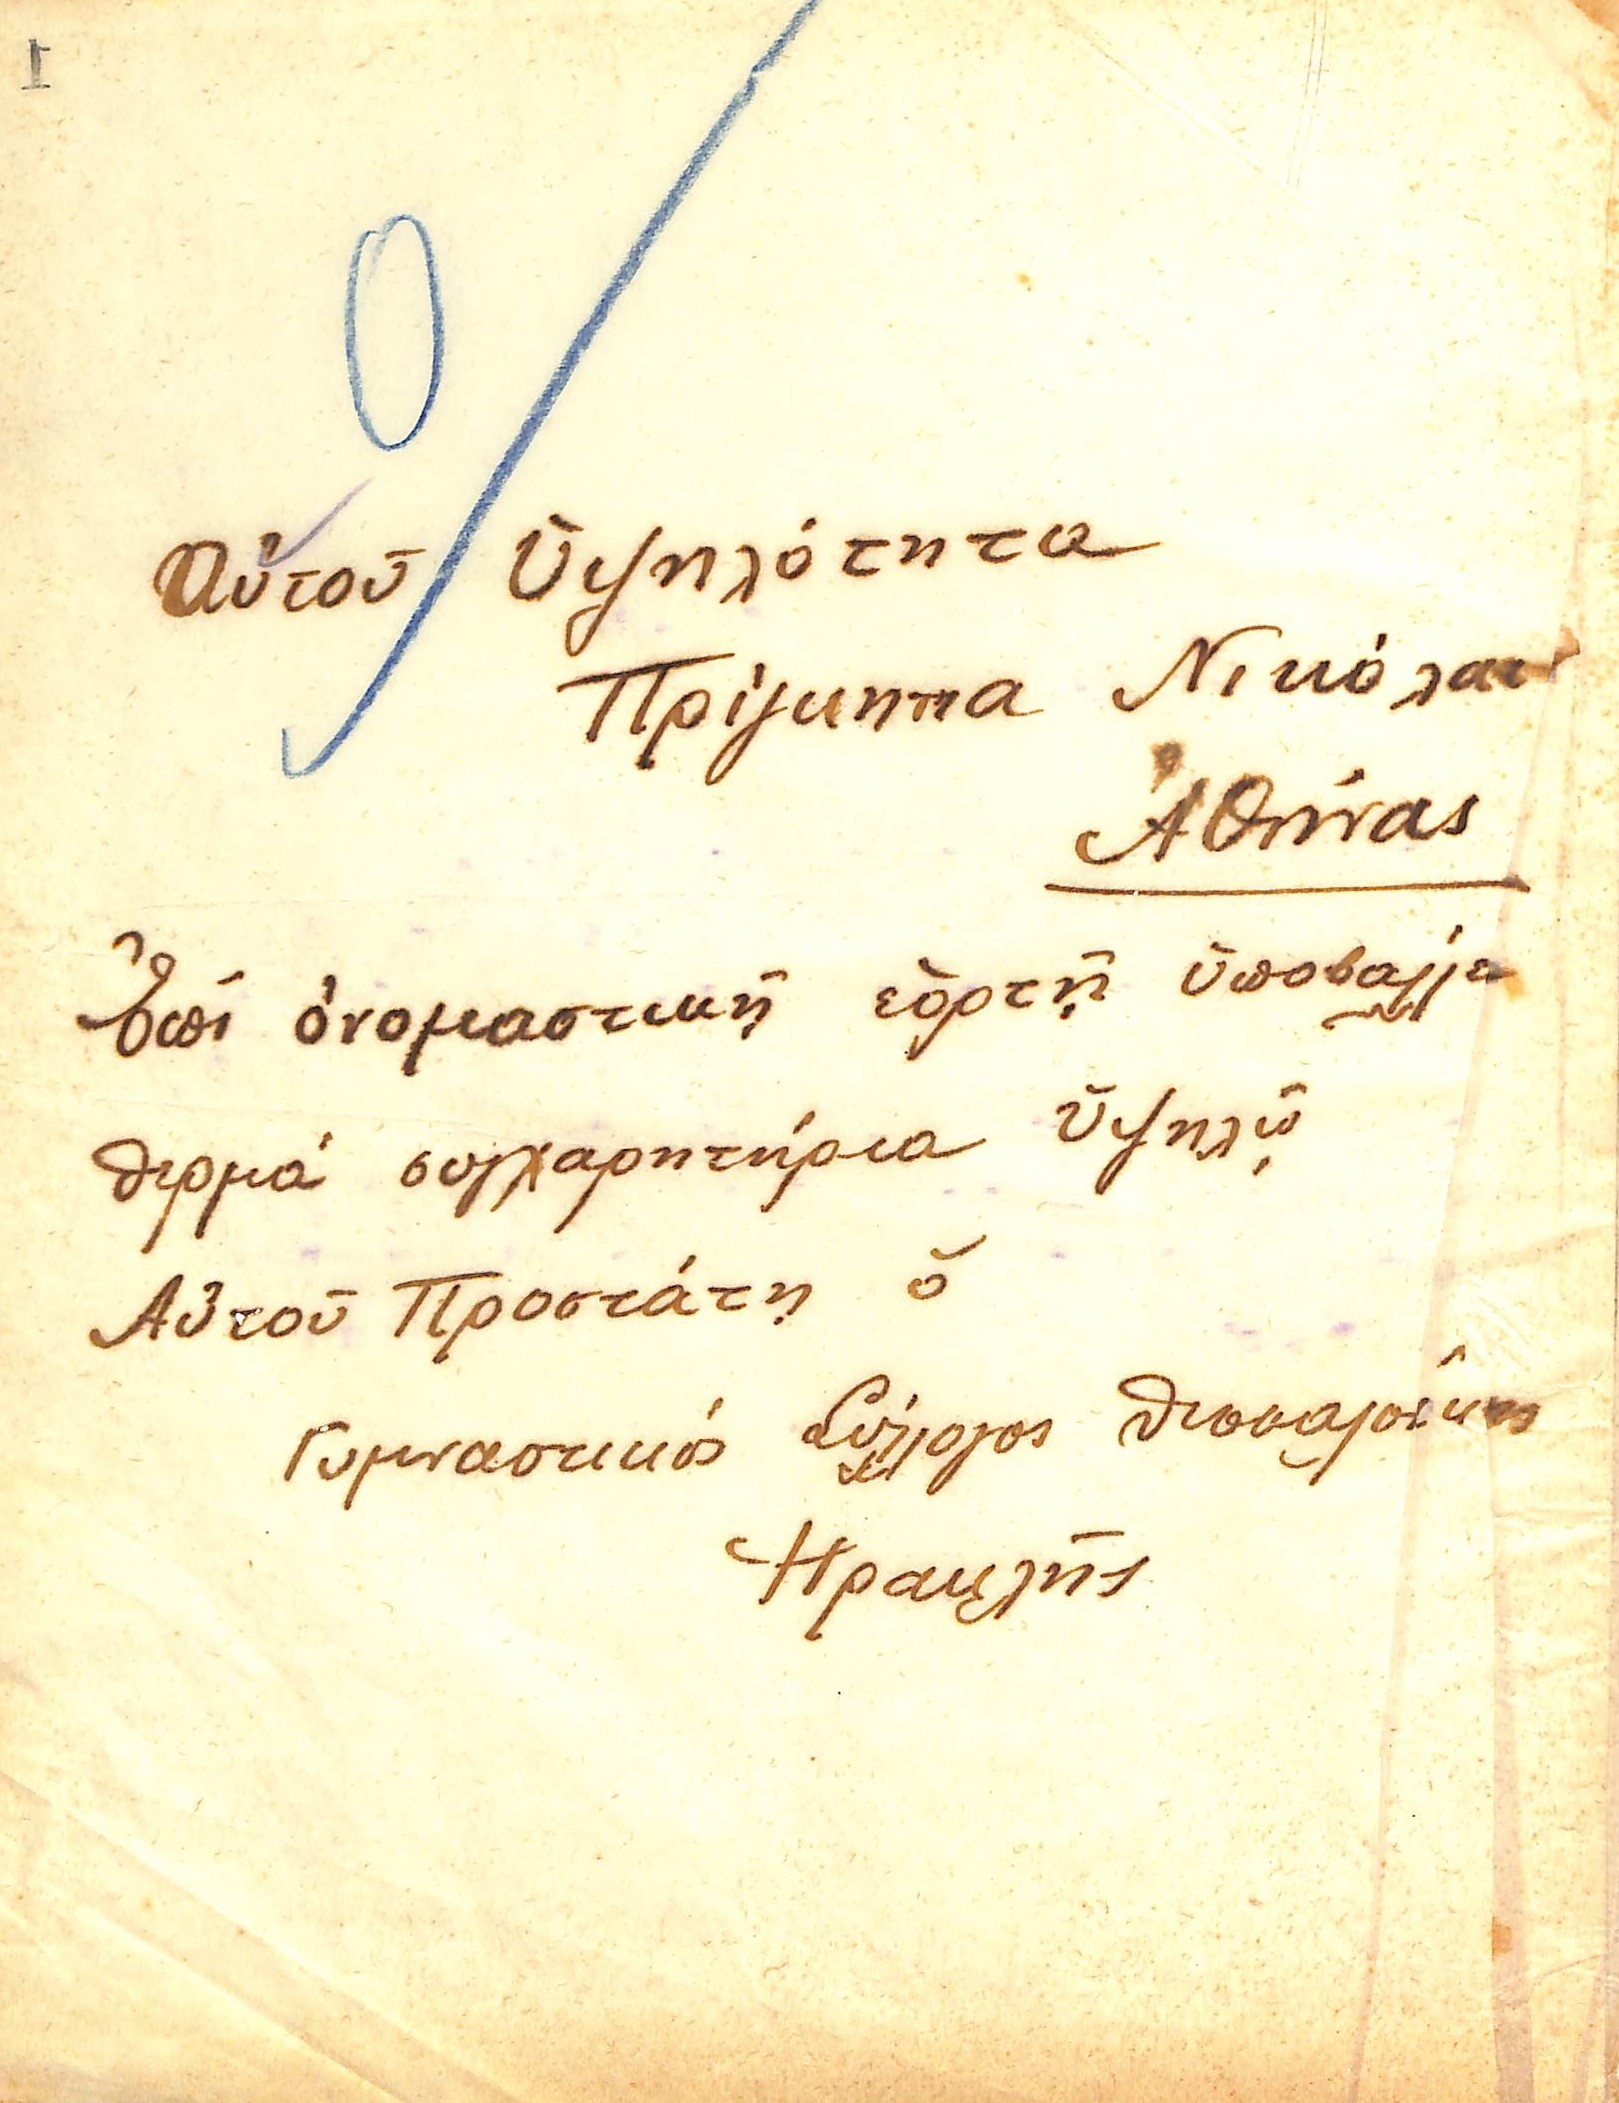 1
Αὐτοῦ Ὑψηλότητα
Πρίγκηπα Νικόλαον
Ἀθήνας
Ἐπὶ ὀνομαστικῇ ἑορτῇ ὑποβάλλει
θερμά συγχαρητήρια Ὑψηλῷ
Αὐτοῦ Προστάτη ὁ
Γυμναστικός Σύλλογος Θεσσαλονίκης
Ἡρακλῆς